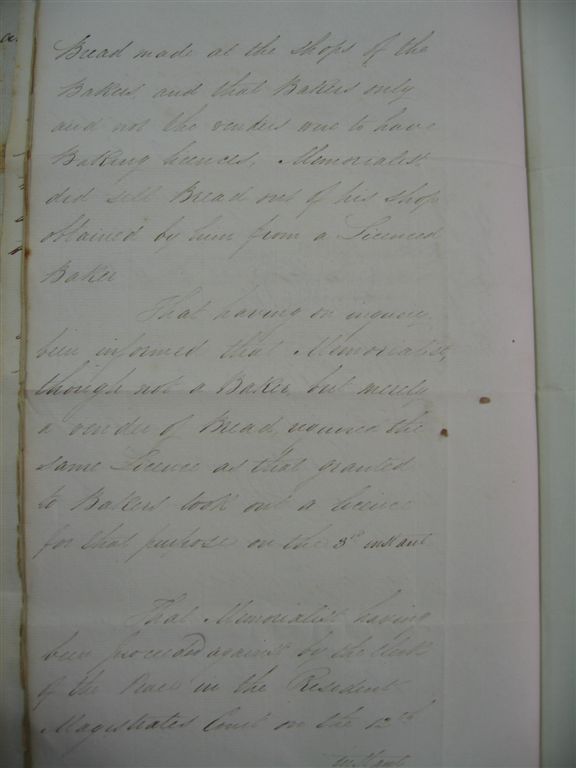 Bread made at the shops of the
Bakers, and that Bakers only
and not the venders were to have
Baking licences, Memorialist
did sell Bread out of his shop
obtained by him from a Licenced
Baker
That having on inquiry
been informed that Memorialist,
though not a Baker, but merely
a vender of Bread, required the
same Licence as that granted
to Bakers took out a licence
for that purpose on the 3rd instant
That Memorialist having
been proceeded against by the Clerk
of the Peace in the Resident
Magistrates Court on the 12th
instant